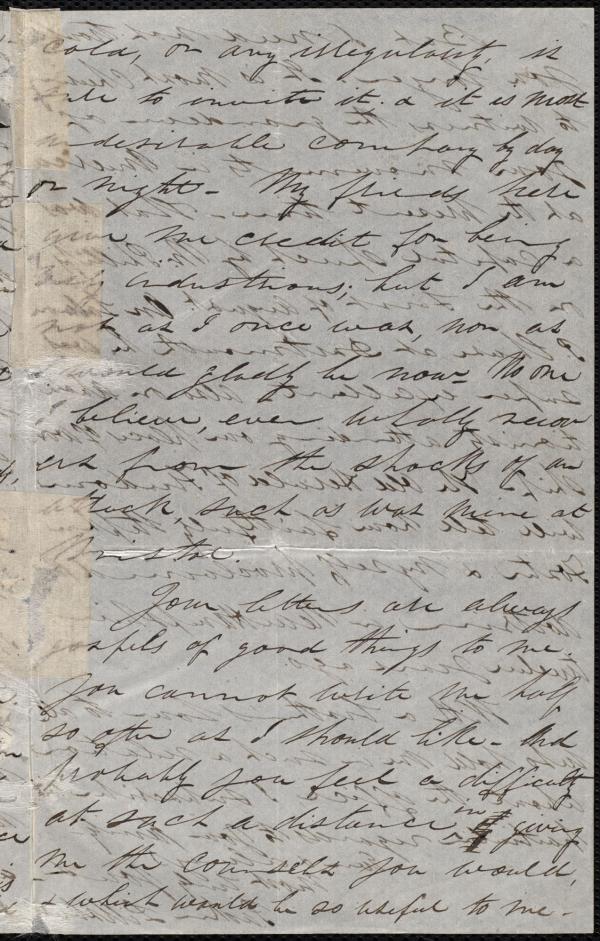 cold, or any irregularity, is
sure to invite it. & it is most
undesirable company by day
or night - My friends here
give me credit for being
industrious; but I am
not as I once was, nor as
I would gladly be now - No one
I believe, ever wholly recov
ers from the shocks of an
attack, such as was mine at
Bristol.
Your letters are always
gospels of good things to me.
You cannot write me half
so often as I should like - And
probably you feel a difficulty
at such a distance, in giving
me the counsels you would,
& which would be so useful to me -